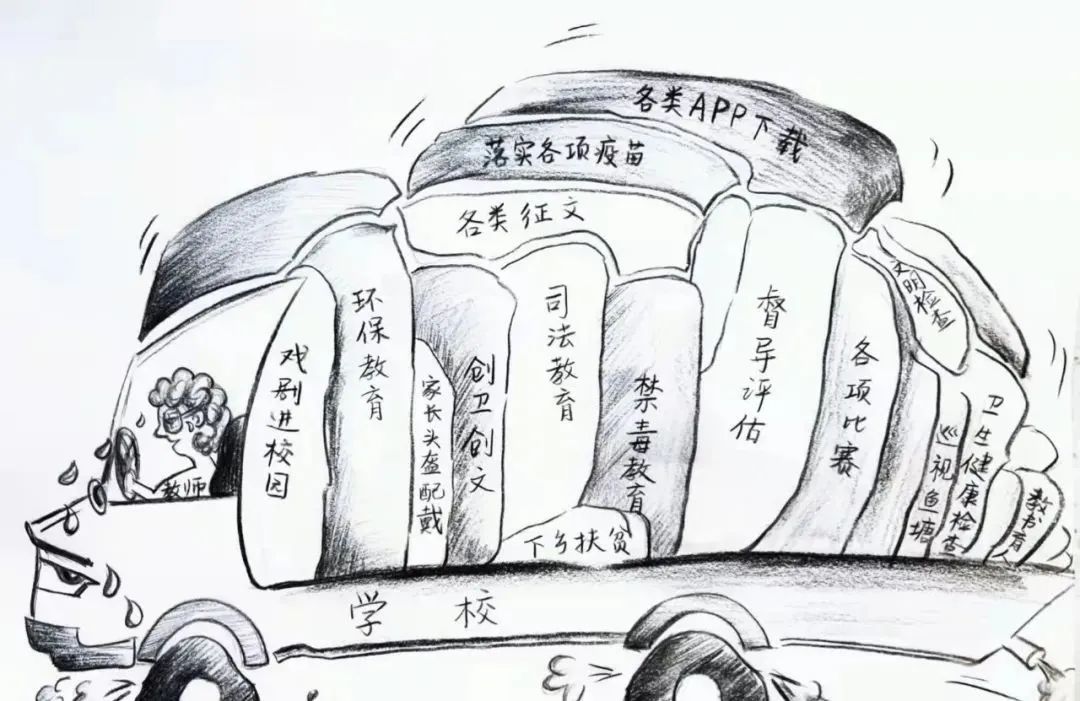 各类APP下载
落实各项疫苗
各类征文
戏剧进校园
环保教育
家长头盔配戴
创卫创文
司法教育
禁毒教育
下乡扶贫
督导评估
各项比赛
文明检查
巡视鱼塘
卫生健康检查
教书育人
教师
学校